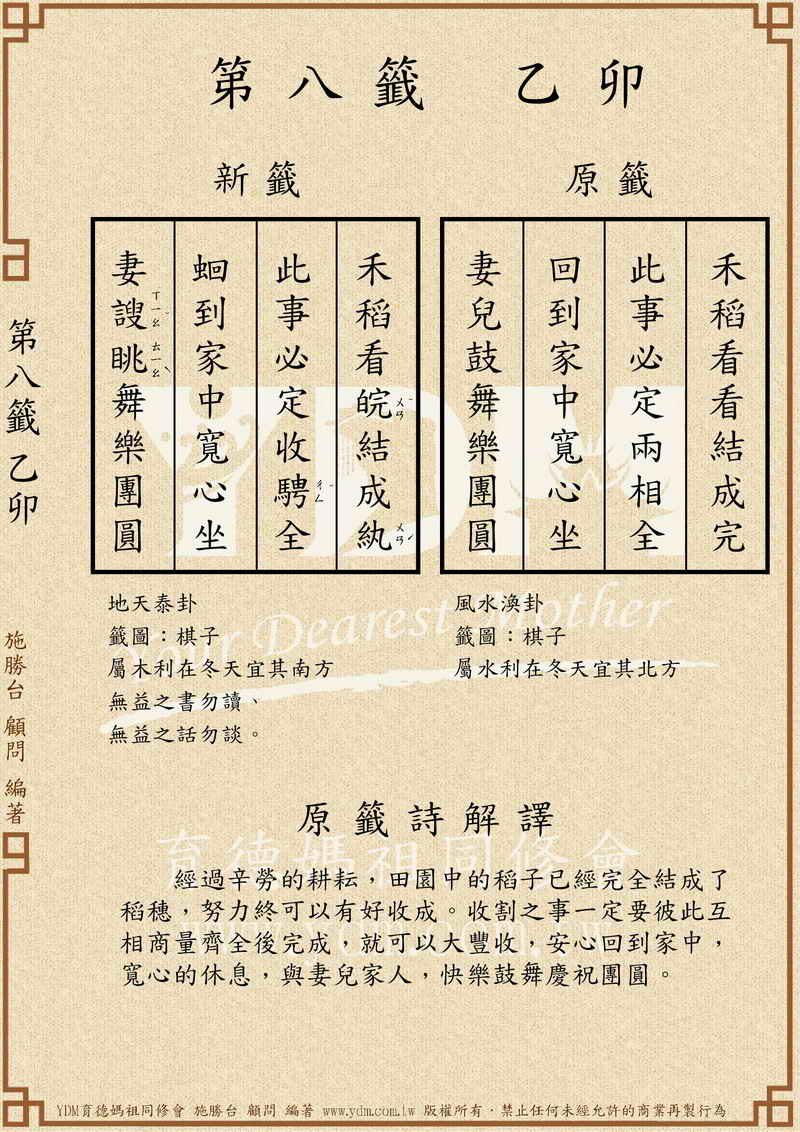 第八籤 乙卯
原籤
禾稻看看結成完
此事必定兩相全
回到家中寬心坐
妻兒鼓舞樂團圓
風水渙卦
籤圖：棋子
屬水利在冬天宜其北方
新籤
禾稻看皖ㄨㄢˇ結成紈ㄨㄢˊ
此事必定收騁ㄔㄥˇ全
蛔到家中寬心坐
妻謏ㄒㄧㄠˇ眺ㄊㄧㄠˋ舞樂團圓
地天泰卦
籤圖：棋子
屬木利在冬天宜其南方
無益之書勿讀、
無益之話勿談。
原籤詩解譯
經過辛勞的耕耘，田園中的稻子已經完全結成了
稻穗，努力終可以有好收成。收割之事一定要彼此互
相商量齊全後完成，就可以大豐收，安心回到家中，
寬心的休息，與妻兒家人，快樂鼓舞慶祝團圓。
第八籤 乙卯
施勝台 顧問 編著
YDM
Your Dearest Mother
育德媽祖同修會
YDM育德媽祖同修會 施勝台 顧問 編著 www.ydm.com.tw 版權所有．禁止任何未經允許的商業再製行為